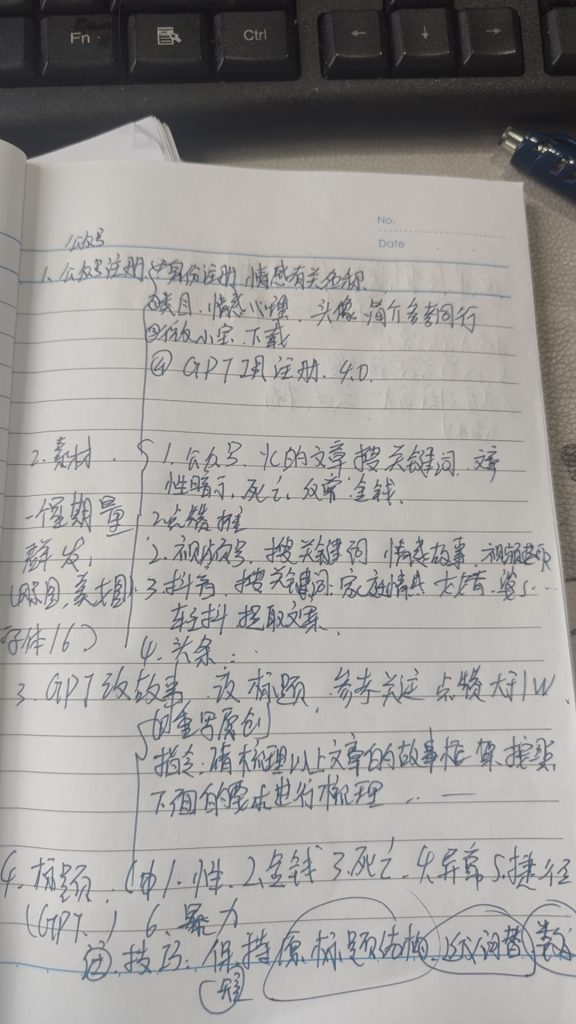 Fn
Ctrl
←
↓
→
No.
Date
公众号
1. 公众号注册 ①身份注册 情感有关名称
②类目, 情感心理, 头像 简介参考同行
下载
④ GPT 注册. 4.0.
2. 素材 1. 公众号. 的文章 搜关键词
性暗示, 死亡, 金钱.
一个星期量 2 点赞 推
群发, 2. 视频号, 搜关键词 情感故事
3. 抖音, 搜关键词 家庭情感
轻抖 提取文案
字体16) 4. 头条...
3. GPT 改故事 改标题, 参考关注 点赞大于1W
的重写原创
指令: 请梳理以上文章的故事框架, 按照
下面的要求进行梳理 ... —
4. 标题. 1. 性. 2. 金钱 3. 死亡. 4. 异常 5. 捷径
(GPT.) 6. 暴力
技巧: 保持原标题结构 词替